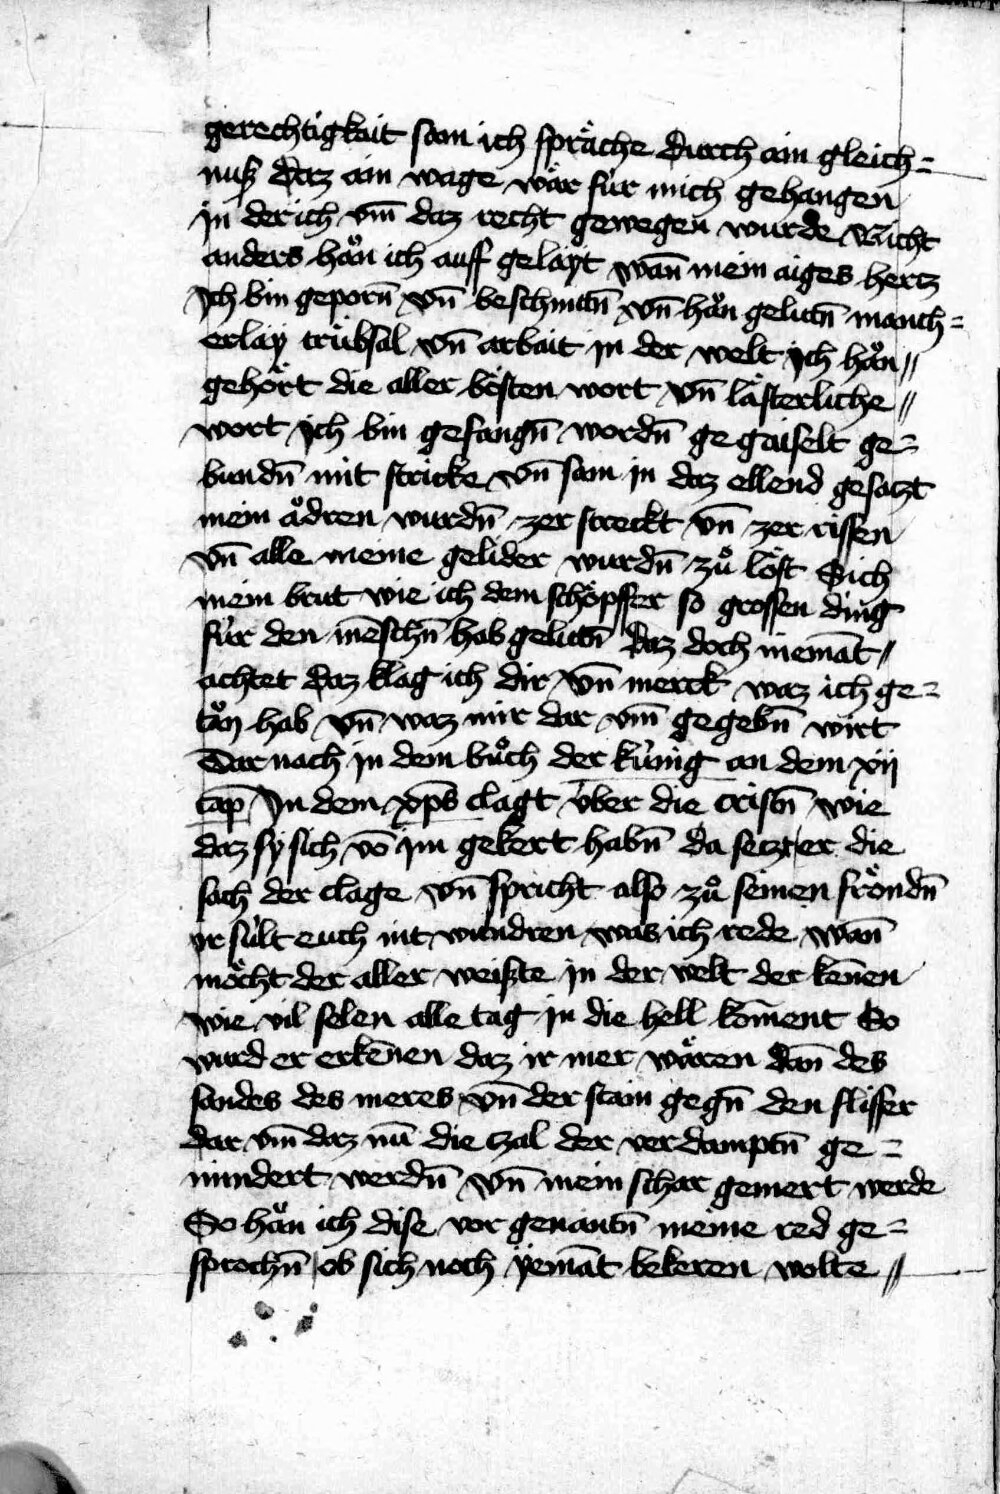 gerechtigkait sam ich spräche durch ain gleich=
nuß daz ain wage wär für mich gehangen
in der ich vm̄ daz recht gewegen wurde Nicht
anders hån ich auff gelayt wan̄ mein aiges hertz
Ich bin geporn̄ vn̄ beschnitn̄ vn̄ hån gelittn̄ manch=
erlay trübsal vn̄ arbait in der welt Ich hån //
gehört die aller bösten wort vn̄ lästerliche //
wort Ich bin gefangn̄ wordn̄ ge gaiselt ge=
bundn̄ mit stricke vn̄ sam in daz ellend gesatzt
mein ådren wurdn̄ zer streckt vn̄ zer rissen
vn̄ alle meine gelider wurdn̄ zů löst Sich
mein brut wie ich dem schöpffer so grossen ding
für den mēschn̄ hab gelittn̄ Daz doch niemāt //
achtet Daz klag ich dir vn̄ merck waz ich ge=
tån hab vn̄ waz mir dar vm̄ gegebn̄ wirt
Dar nach in dem bůch der künig an dem xij
cap̄ In dem xp̄s clagt über die cristn̄ wie
daz sy sich vō im gekert habn̄ da setzt er die
sach der clage vn̄ spricht also zů seinen fröndn̄
yr sült euch nit wundren was ich rede wan̄
möcht der aller weißte in der welt der kēnen
wie vil selen alle tag in die hell kom̄ent So
wurd er erkēnen daz ir mer wären dan̄ des
sandes des meres vn̄ der stain gegn̄ den flisser
dar vm̄ daz nū die tzal der verdamptn̄ ge=
mindert werdn̄ vn̄ mein schar gemert werde
So hån ich dise vor genantn̄ meine red ge=
sprochn̄ ob sich noch yemāt bekeren wolte //